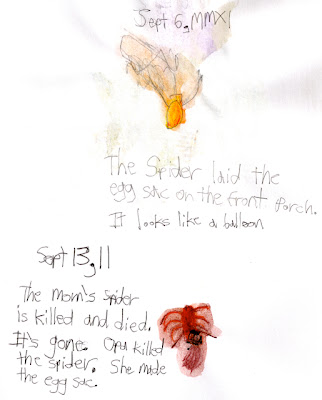 Sept 6, MMXI
The Spider laid the
egg sac on the front Porch.
It looks like a balloon
Sept 13, 11
The mom's spider
is killed and died.
It's gone. Opa killed
the spider. She made
the egg sac.